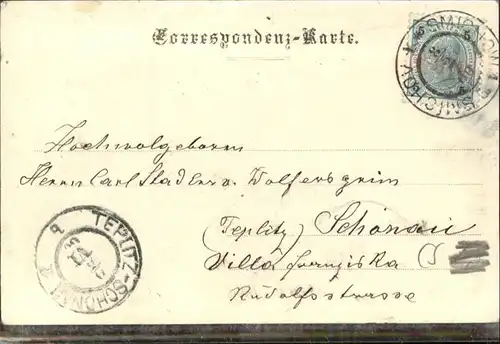 Correspondenz-Karte.
SMICHOW
SMÍCHOV
5 5
Hochwolgeboren
Herrn Carl Stadler v. Wolfersgrün
(Teplitz) Schönau
Villa Franziska
Rudolfstrasse
TEPLITZ-SCHÖNAU